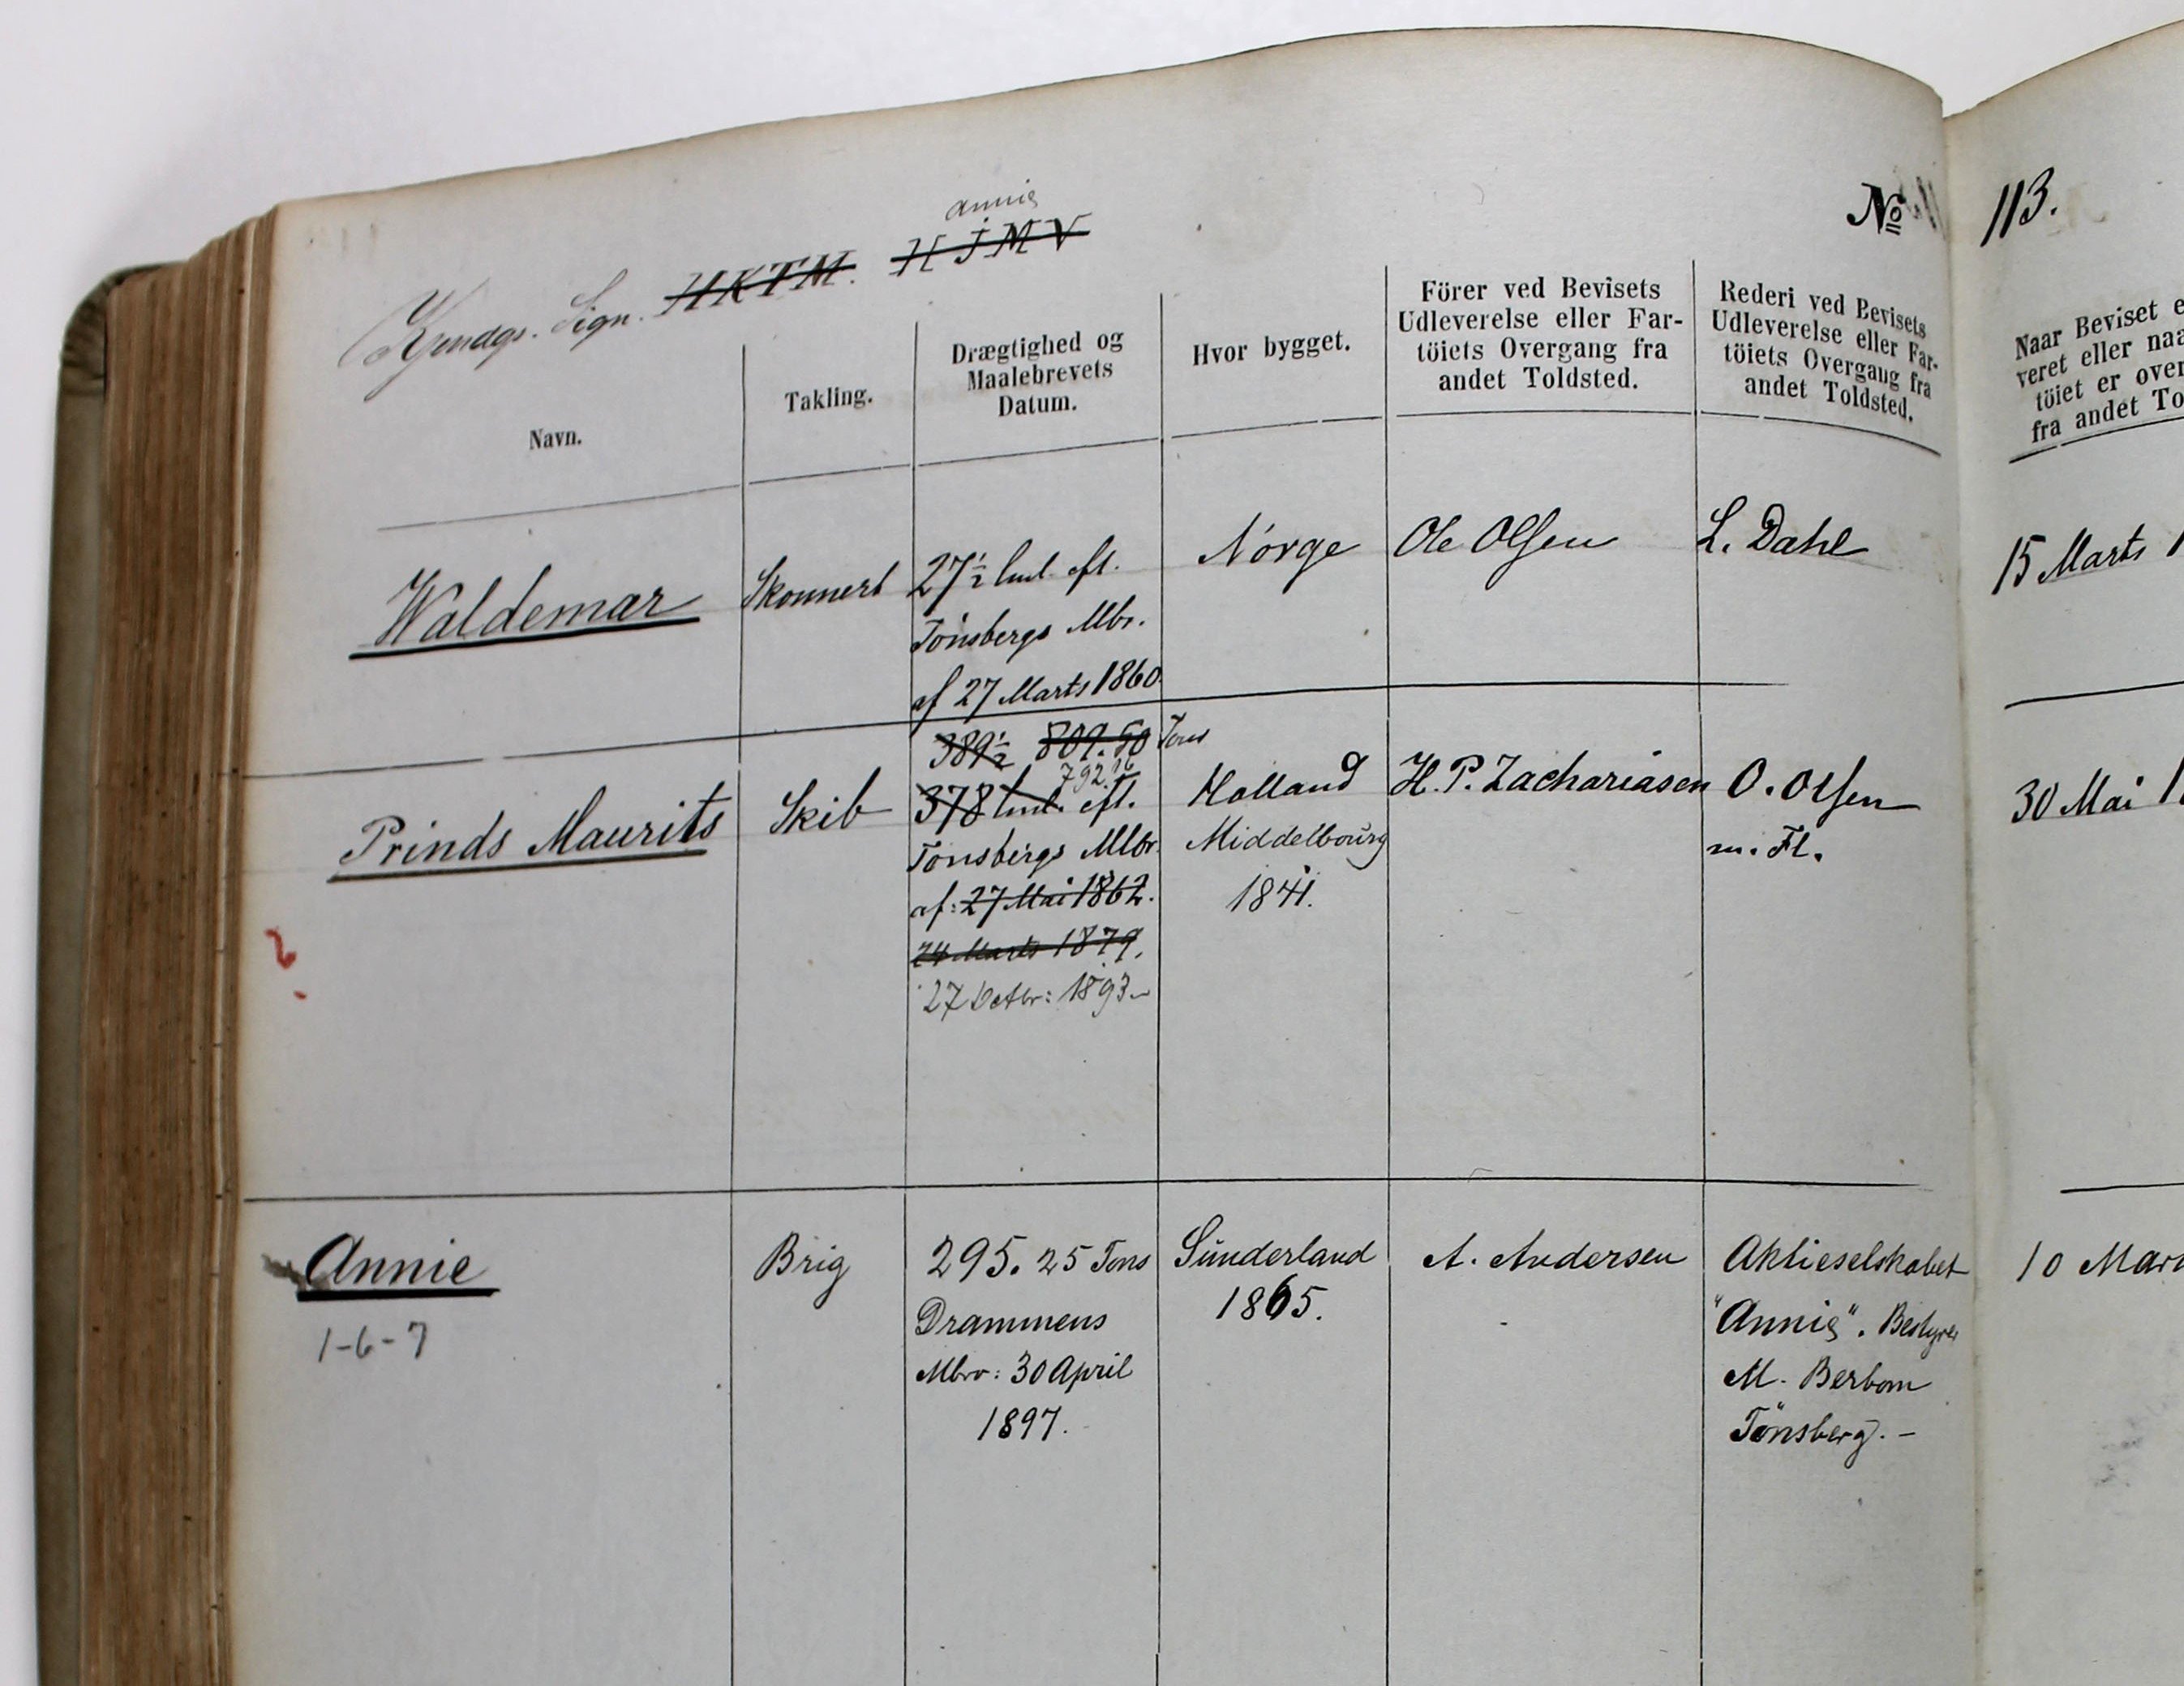 Annie
Kjendgs. Sign. HKTM. HJMV
No 113.
Navn.
Takling.
Drægtighed og
Maalebrevets
Datum.
Hvor bygget.
Förer ved Bevisets
Udleverelse eller Far-
töiets Overgang fra
andet Toldsted.
Rederi ved Bevisets
Udleverelse eller Far-
töiets Overgang fra
andet Toldsted.
Naar Beviset e
veret eller naa
töiet er over
fra andet To
Waldemar
Skonnert
27½ Cml. eft.
Tönsbergs Mbr.
af 27 Marts 1860.
Norge
Ole Olsen
L. Dahl
15 Marts 1
Prinds Maurits
Skib
389½ 809.50 Tons
792.16
378 Cml. eft.
Tönsbergs Mbr.
af: 27 Mai 1862.
24 Marts 1879.
27 Octbr: 1893
Holland
Middelbourg
1841.
H. P. Zachariasen
O. Olsen
m. Fl.
30 Mai 1
Annie
1-6-7
Brig
295. 25 Tons
Drammens
Mbrv: 30 April
1897.
Sunderland
1865.
A. Andersen
Aktieselskabet
"Annie". Bestyrer
M. Berbom
Tönsberg. -
10 Mar